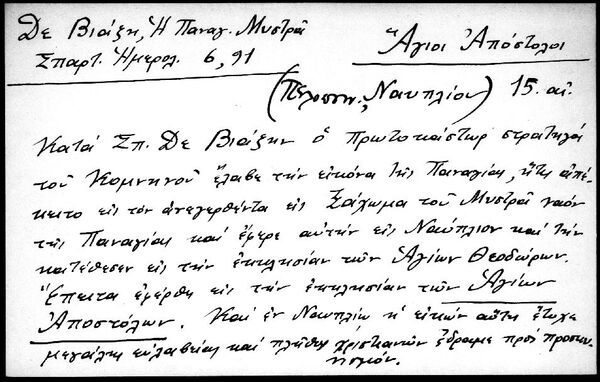 Δε Βιάζη, Ἡ Παναγ. Μυστρᾶ
Σπαρτ. Ἡμερολ. 6, 91
Ἅγιοι Ἀπόστολοι
(Πελοπον., Ναυπλίου) 15. αἰ.
Κατά Σπ. Δε Βιάζην ὁ Πρωτοκάστωρ στρατηγός
τοῦ Κομνηνοῦ ἔλαβε τήν εἰκόνα τῆς Παναγίας, ἥτις ἀπέ-
κειτο εἰς τόν ἀνεγερθέντα εἰς Ξάχωμα τοῦ Μυστρᾶ ναόν
τῆς Παναγίας καί ἔφερε αὐτήν εἰς Ναύπλιον καί τήν
κατέθεσεν εἰς τήν ἐκκλησίαν τῶν Ἁγίων Θεοδώρων.
Ἔπειτα ἐφέρθη εἰς τήν ἐκκλησίαν τῶν Ἁγίων
Ἀποστόλων. Καί ἐν Ναυπλίῳ ἡ εἰκών αὕτη ἔτυχε
μεγάλης εὐλαβείας καί πλῆθος χριστιανῶν ἔδραμε πρός προσκυ-
νησμόν.